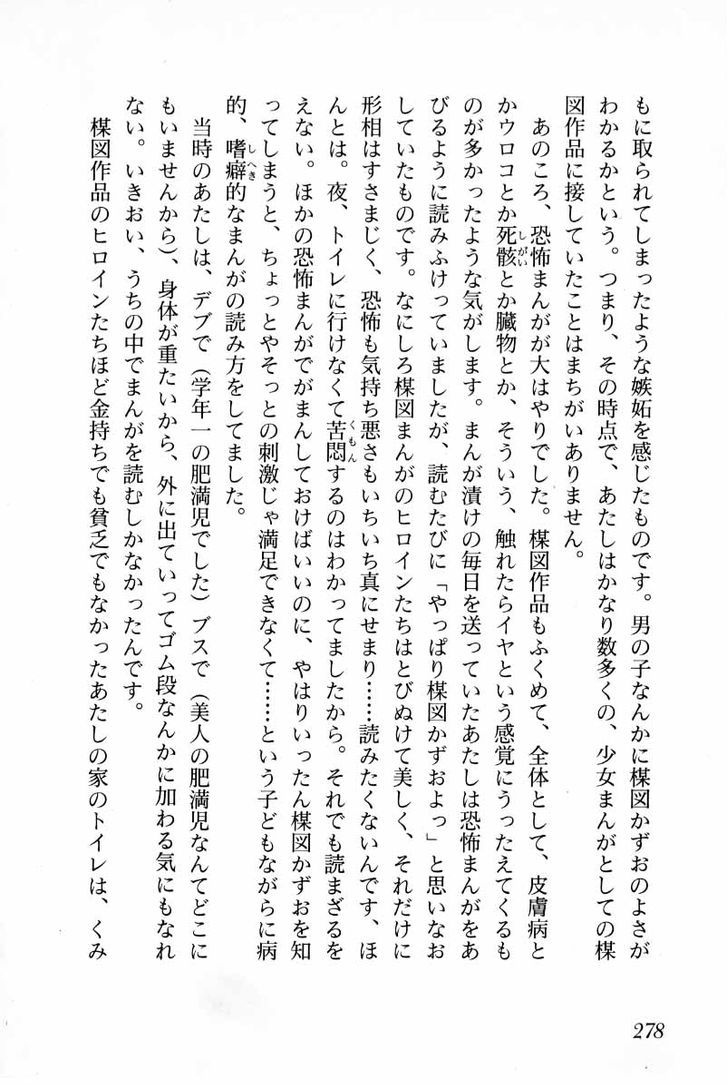 もに取られてしまったような嫉妬を感じたものです。男の子なんかに楳図かずおのよさが
わかるかという。つまり、その時点で、あたしはかなり数多くの、少女まんがとしての楳
図作品に接していたことはまちがいありません。
あのころ、恐怖まんがが大はやりでした。楳図作品もふくめて、全体として、皮膚病と
かウロコとか死骸とか臓物とか、そういう、触れたらイヤという感覚にうったえてくるも
のが多かったような気がします。まんが漬けの毎日を送っていたあたしは恐怖まんがをあ
びるように読みふけっていましたが、読むたびに「やっぱり楳図かずおよっ」と思いなお
していたものです。なにしろ楳図まんがのヒロインたちはとびぬけて美しく、それだけに
形相はすさまじく、恐怖も気持ち悪さもいちいち真にせまり……読みたくないんです、ほ
んとは。夜、トイレに行けなくて苦悶するのはわかってましたから。それでも読まざるを
えない。ほかの恐怖まんがでがまんしておけばいいのに、やはりいったん楳図かずおを知
ってしまうと、ちょっとやそっとの刺激じゃ満足できなくて……という子どもながらに病
的、嗜癖的なまんがの読み方をしてました。
当時のあたしは、デブで（学年一の肥満児でした）ブスで（美人の肥満児なんてどこに
もいませんから）、身体が重たいから、外に出ていってゴム段なんかに加わる気にもなれ
ない。いきおい、うちの中でまんがを読むしかなかったんです。
楳図作品のヒロインたちほど金持ちでも貧乏でもなかったあたしの家のトイレは、くみ
278